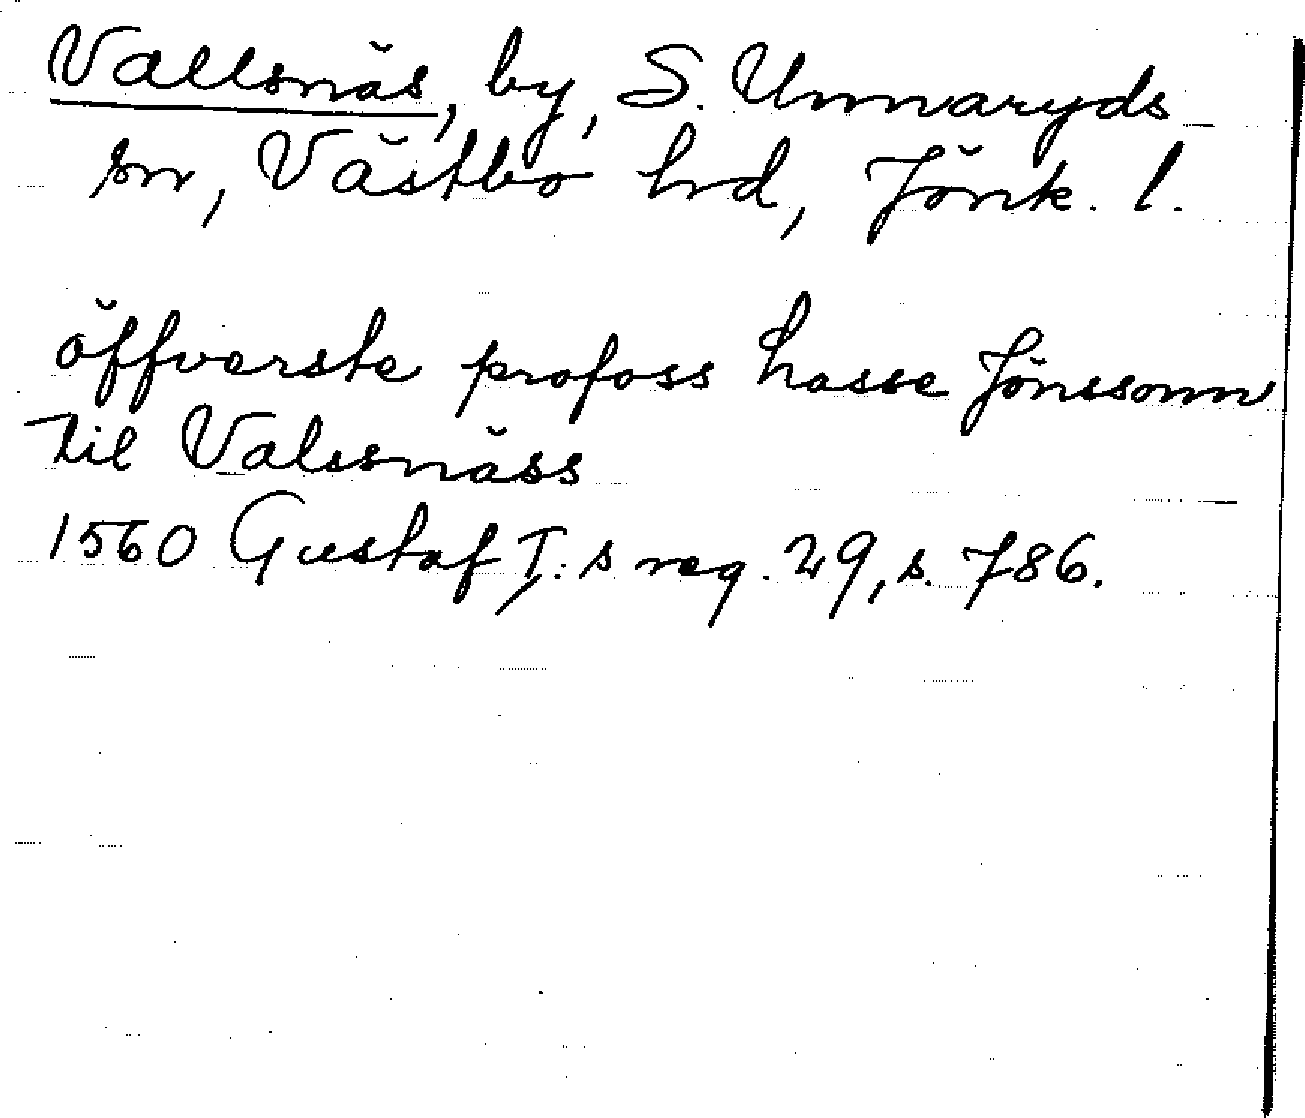 Vallsnäs, by, S. Unnaryds
sn, Västbo hrd, Jönk. l.
öffverste profoss hasse Jönssonn
til Valssnäss
1560 Gustaf I:s reg. 29, s. 786.